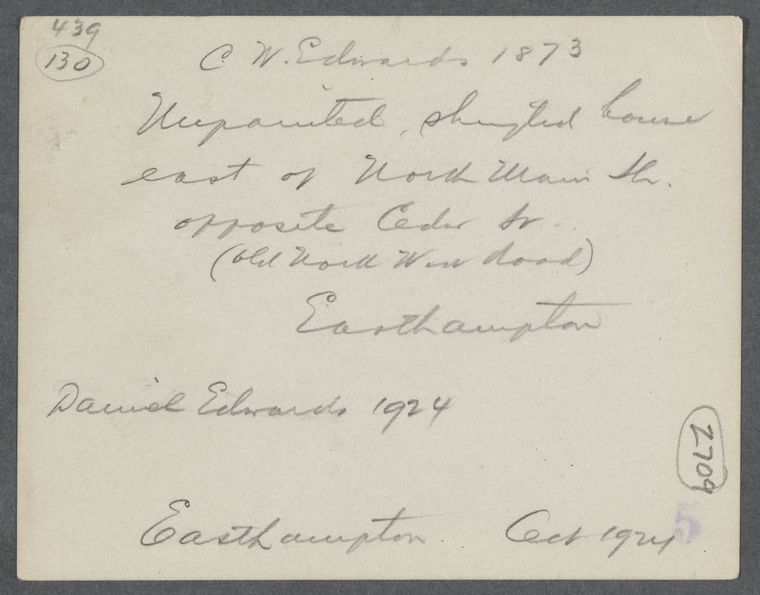 439
130
C W. Edwards 1873
Unpainted, shingled house
east of North Main St.
opposite Cedar St
(old North West Road)
Easthampton
Daniel Edwards 1924
2709
Easthampton Oct 1924
5